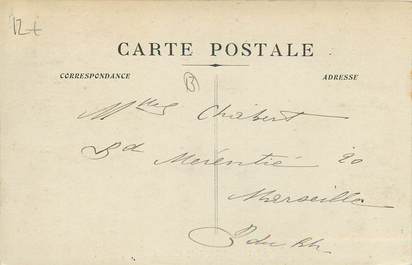 12 €
CARTE POSTALE
CORRESPONDANCE
ADRESSE
13
Mlles Chabert
Bd Mérentié 20
Marseille
B du Rh